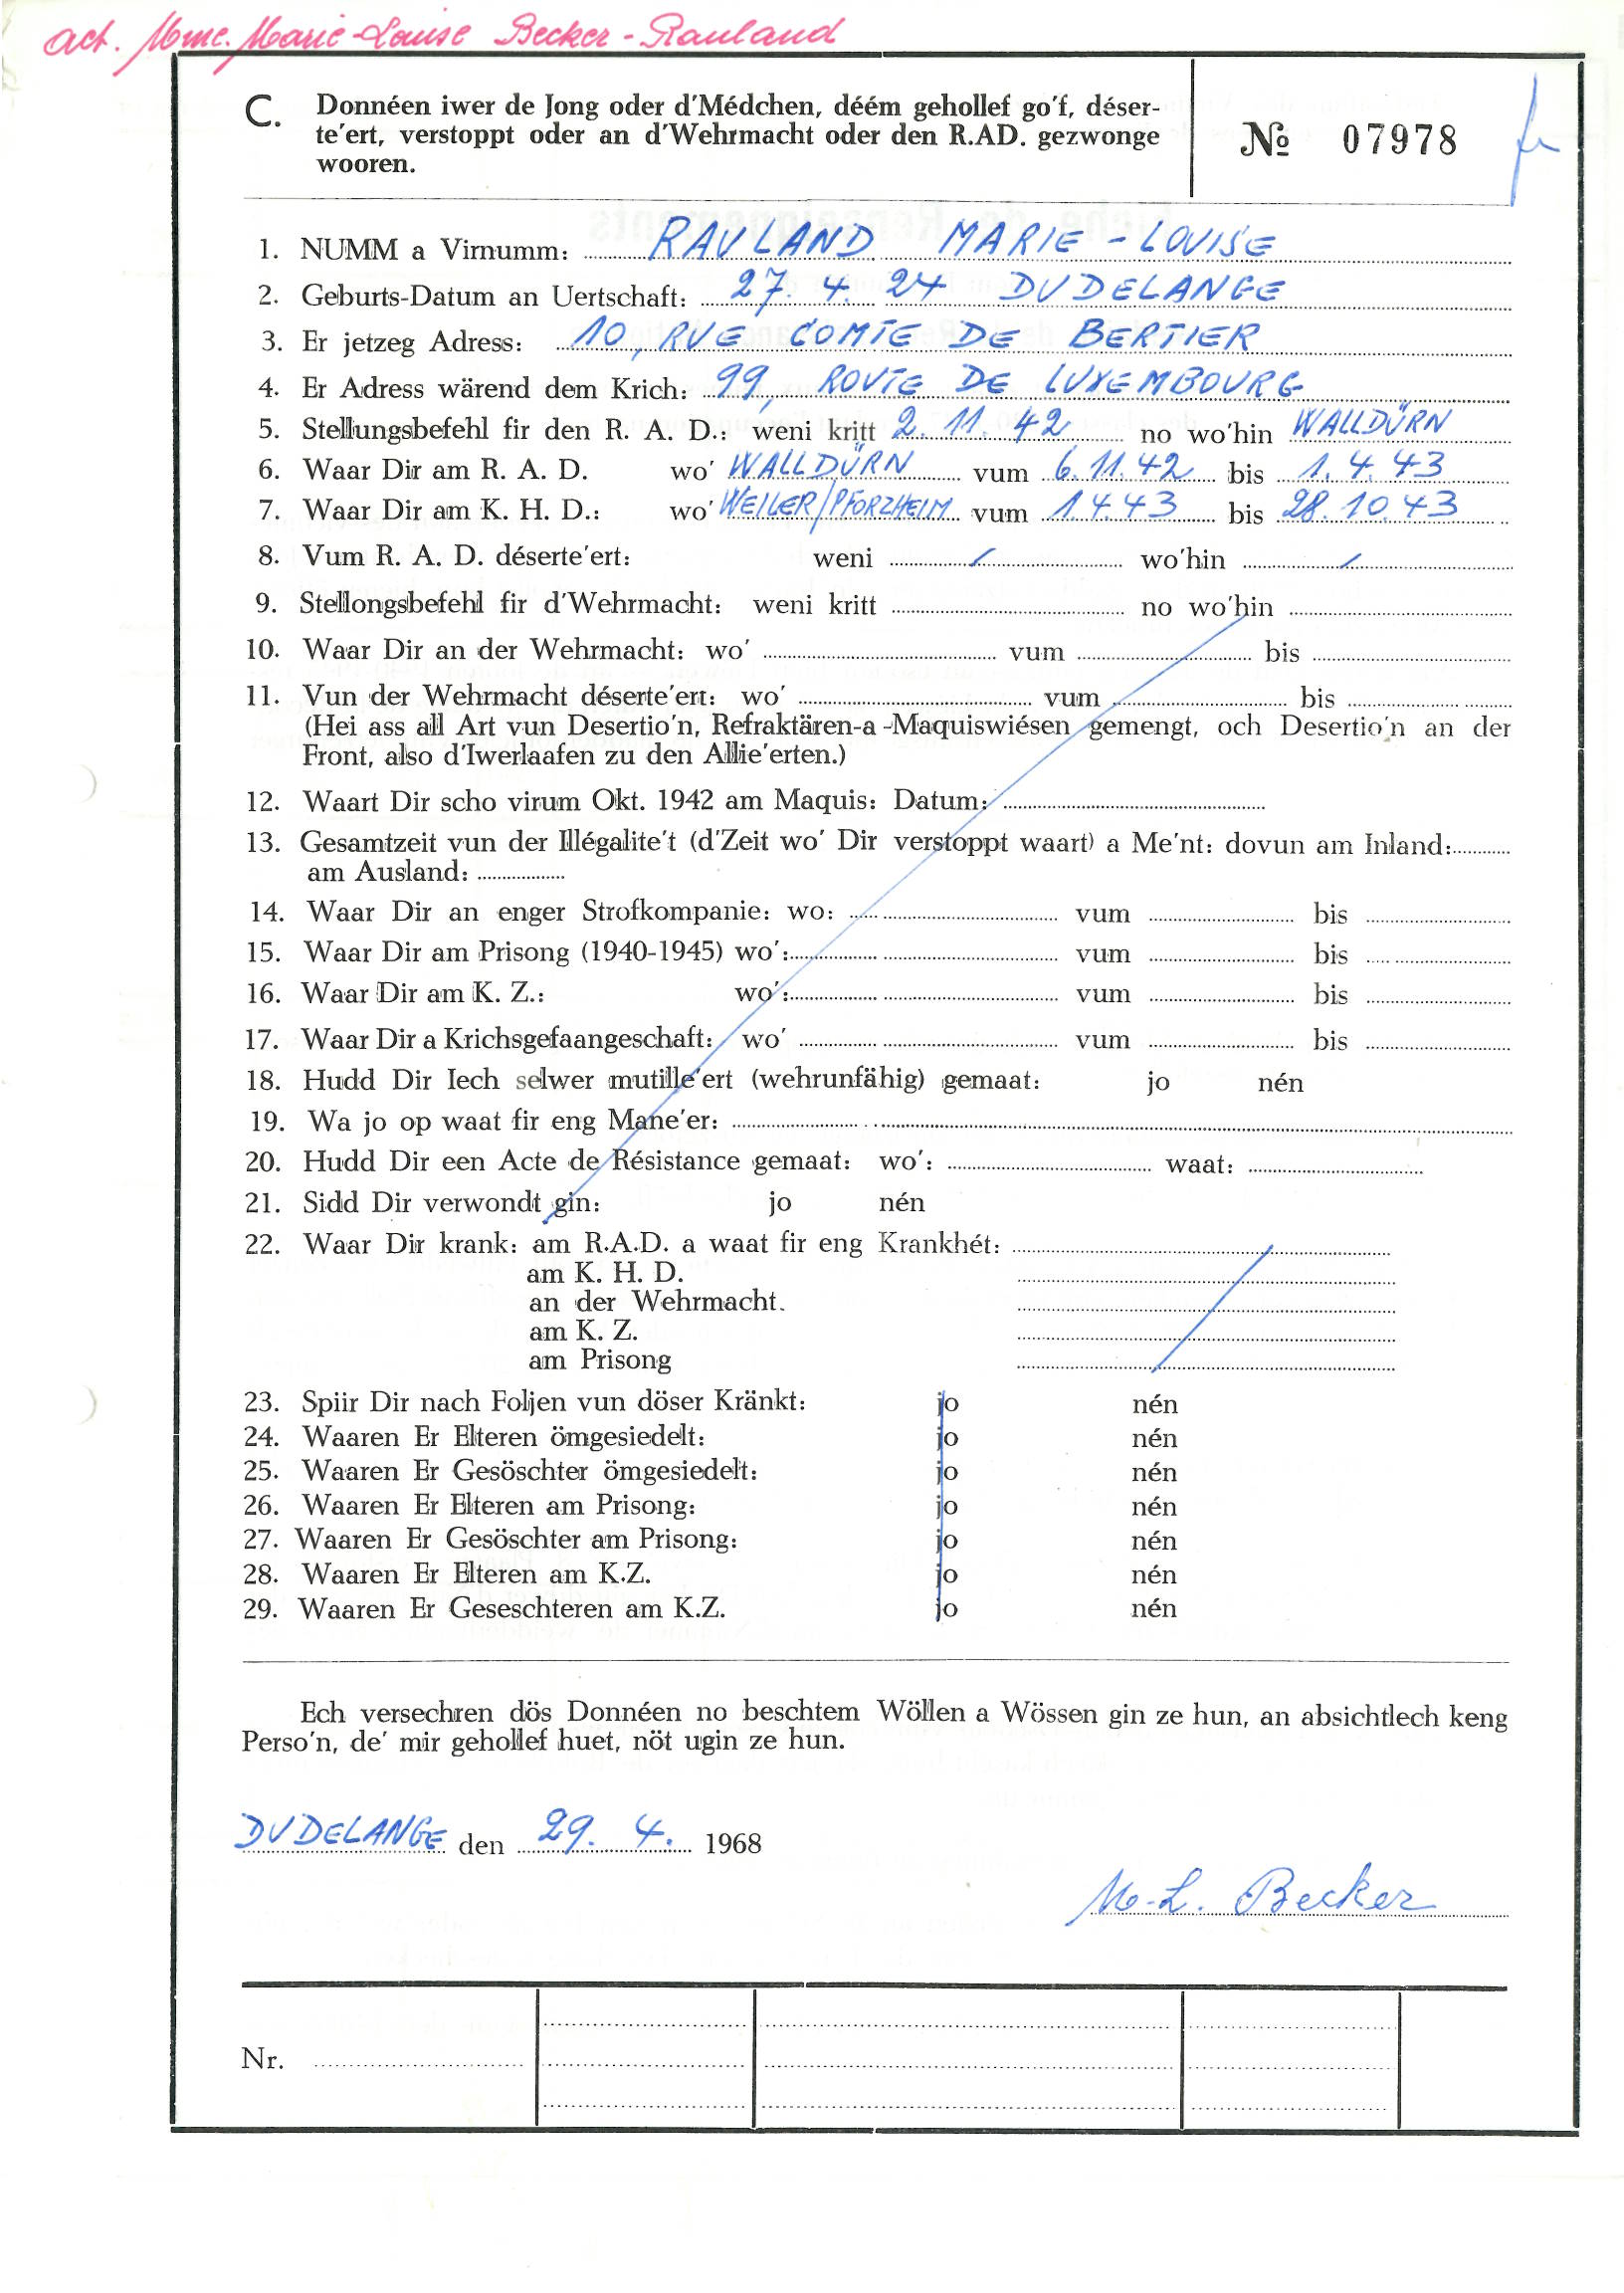 act. Mme. Marie-Louise Becker-Rauland
C. Donnéen iwer de Jong oder d'Médchen, déém gehollef go'f, déser-
te'ert, verstoppt oder an d'Wehrmacht oder den R.AD. gezwonge
wooren.
№ 07978
1. NUMM a Virnumm: RAULAND MARIE-LOUISE
2. Geburts-Datum an Uertschaft: 27. 4. 24 DUDELANGE
3. Er jetzeg Adress: 10, RUE COMTE DE BERTIER
4. Er Adress wärend dem Krich: 99, ROUTE DE LUXEMBOURG
5. Stellungsbefehl fir den R. A. D.: weni kritt 2. 11. 42 no wo'hin WALLDÜRN
6. Waar Dir am R. A. D. wo' WALLDÜRN vum 6.11.42 bis 1. 4. 43
7. Waar Dir am K. H. D.: wo' WEILER/PFORZHEIM vum 1.4.43 bis 28.10.43
8. Vum R. A. D. déserte'ert: weni / wo'hin /
9. Stellongsbefehl fir d'Wehrmacht: weni kritt no wo'hin
10. Waar Dir an der Wehrmacht: wo' vum bis
11. Vun der Wehrmacht déserte'ert: wo' vum bis
(Hei ass all Art vun Desertio'n, Refraktären-a-Maquiswiésen gemengt, och Desertio'n an der
Front, also d'Iwerlaafen zu den Allie'erten.)
12. Waart Dir scho virum Okt. 1942 am Maquis: Datum:
13. Gesamtzeit vun der Illégalite't (d'Zeit wo' Dir verstoppt waart) a Me'nt: dovun am Inland:
am Ausland:
14. Waar Dir an enger Strofkompanie: wo: vum bis
15. Waar Dir am Prisong (1940-1945) wo': vum bis
16. Waar Dir am K. Z.: wo': vum bis
17. Waar Dir a Krichsgefaangeschaft: wo' vum bis
18. Hudd Dir Iech selwer mutille'ert (wehrunfähig) gemaat: jo nén
19. Wa jo op waat fir eng Mane'er:
20. Hudd Dir een Acte de Résistance gemaat: wo': waat:
21. Sidd Dir verwondt gin: jo nén
22. Waar Dir krank: am R.A.D. a waat fir eng Krankhét:
am K. H. D.
an der Wehrmacht.
am K. Z.
am Prisong
23. Spiir Dir nach Foljen vun döser Kränkt: jo nén
24. Waaren Er Elteren ömgesiedelt: jo nén
25. Waaren Er Gesöschter ömgesiedelt: jo nén
26. Waaren Er Elteren am Prisong: jo nén
27. Waaren Er Gesöschter am Prisong: jo nén
28. Waaren Er Elteren am K.Z. jo nén
29. Waaren Er Geseschteren am K.Z. jo nén
Ech versechren dös Donnéen no beschtem Wöllen a Wössen gin ze hun, an absichtlech keng
Perso'n, de' mir gehollef huet, nöt ugin ze hun.
DUDELANGE den 29. 4. 1968
M.-L. Becker
Nr.